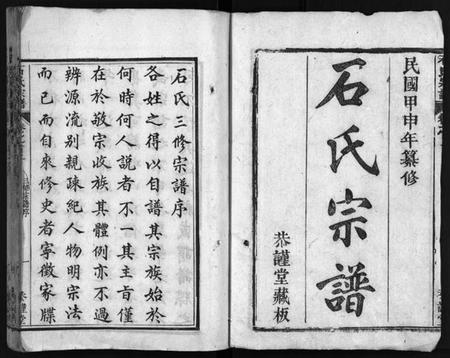 民國甲申年纂修
石氏宗譜
恭謹堂藏板
石氏三修宗譜序
各姓之得以自譜其宗族始於
何時何人説者不一其主旨僅
在於敬宗收族其體例亦不過
辨源流別親疎紀人物明宗法
而已而自來修史者寧徵家牒